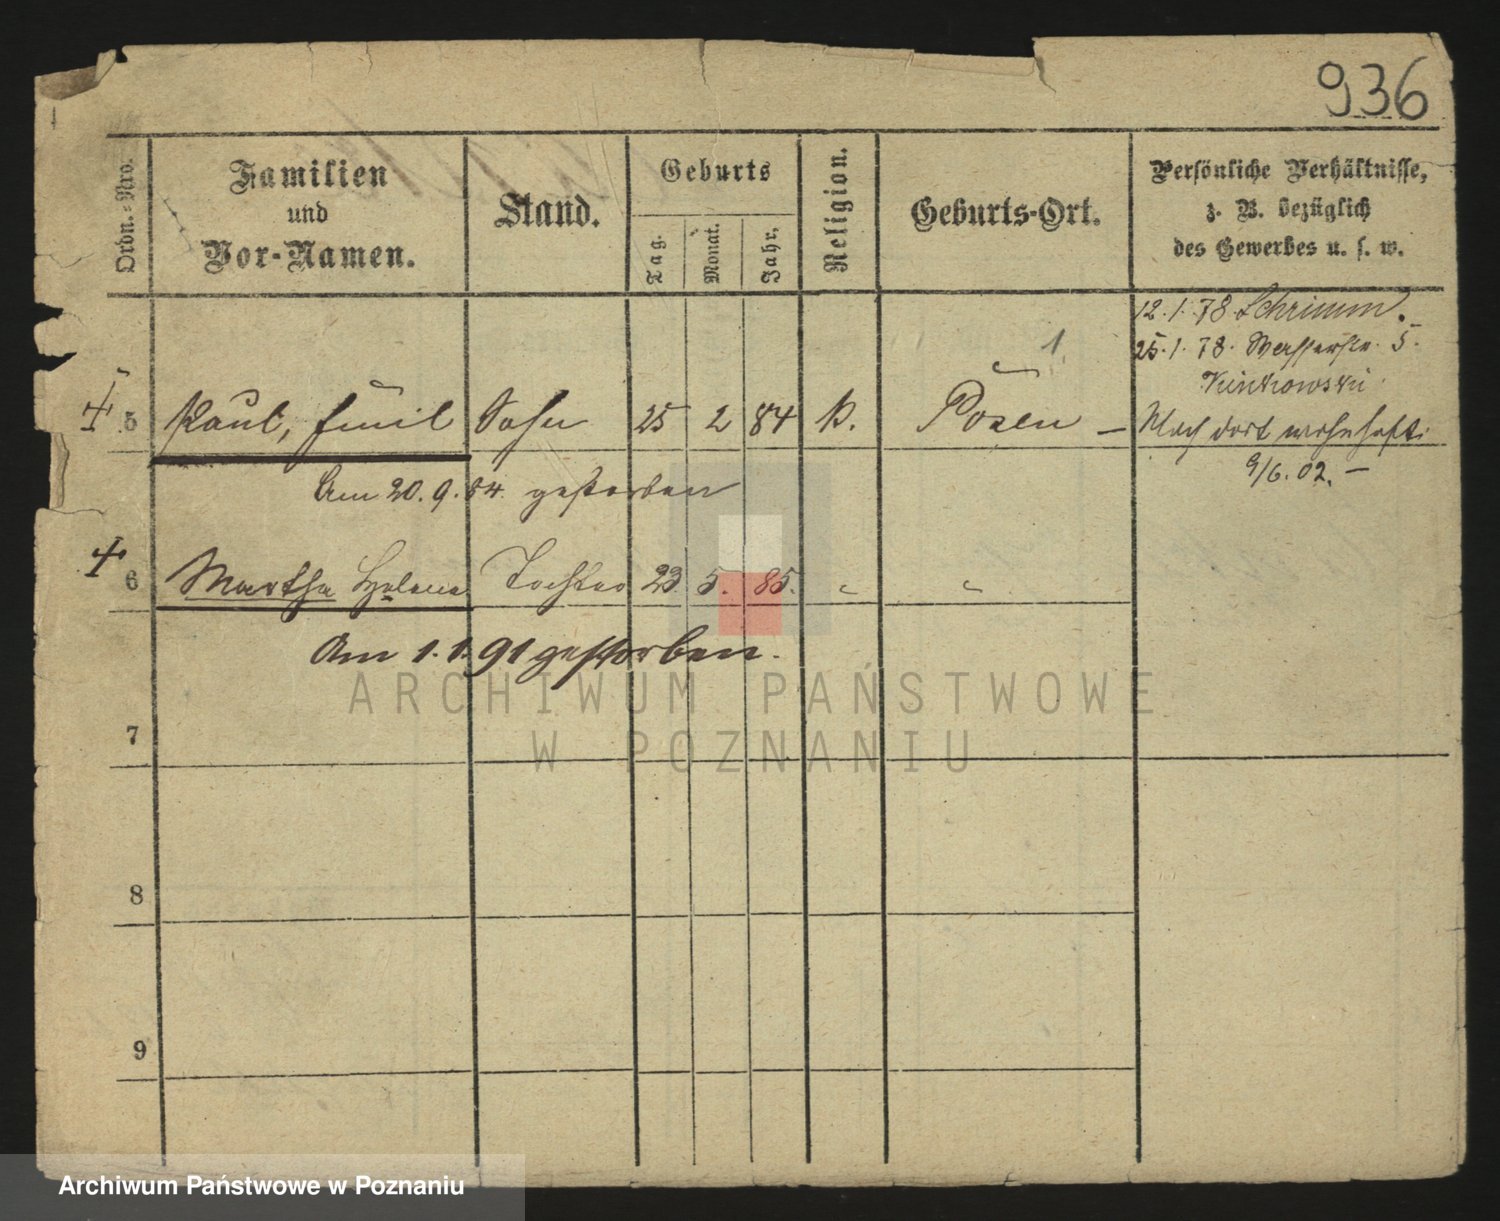 936
Ordn.-Nro.
Familien
und
Vor-Namen.
Stand.
Geburts
Tag.
Monat.
Jahr.
Religion.
Geburts-Ort.
Persönliche Verhältnisse,
z. B. bezüglich
des Gewerbes u. s. w.
12. 1. 78. Schrimm.
25. 1. 78. Wasserstr. 5.
1
5 Paul, Emil Sohn 25 2 84 k. Posen –
Noch dort wohnhaft.
9/6. 02. –
Am 20. 9. 84. gestorben
6 Martha Helene Tochter 23. 5. 85. " "
Am 1. 1. 91 gestorben.
ARCHIWUM PAŃSTWOWE
W POZNANIU
7
8
9
Archiwum Państwowe w Poznaniu